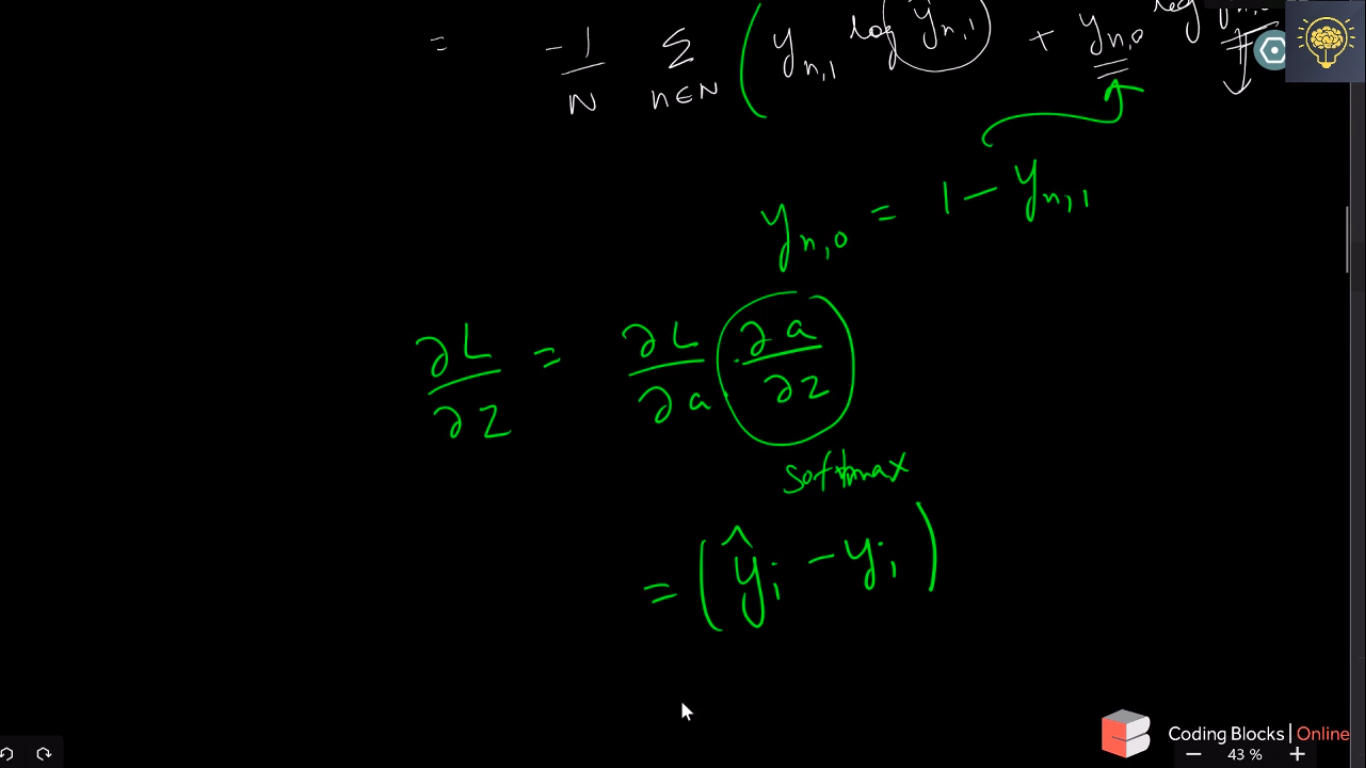 = -1/N Σ n∈N ( y_{n,1} log ŷ_{n,1} + y_{n,0} log
y_{n,0} = 1 - y_{n,1}
∂L/∂z = ∂L/∂a · ∂a/∂z
softmax
= (ŷ_i - y_i)
Coding Blocks | Online
− 43 % +